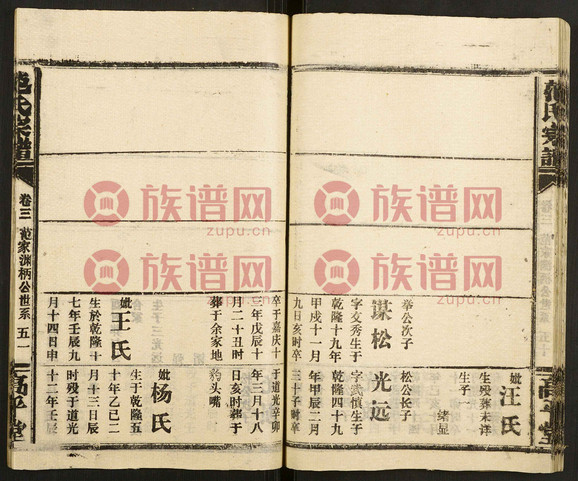 范氏宗譜
高平堂
妣汪氏
生殁葬未详
生子
绪显
举公次子
谋松
字文秀生于
乾隆十九年
甲戌十一月
九日亥时卒
松公长子
光远
字武慎生子
乾隆四十九
年甲辰二月
三十子时卒
卒于嘉庆十
三年戊辰十
月二十丑时
葬于余家地
于道光辛卯
年三月十八
日亥时葬于
豹头嘴
妣王氏
生於乾隆十
七年壬辰九
月十四日申
妣杨氏
生于乾隆五
十年乙巳二
月十三日辰
时殁于道光
十二年壬辰
范氏宗譜
卷三
范家渊柄公世系
五一
高平堂
族谱网
zupu.cn
族谱网
zupu.cn
族谱网
zupu.cn
族谱网
zupu.cn